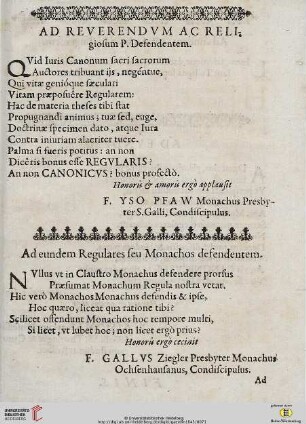 AD REVERENDVM AC RELI-
giosum P. Defendentem.
QVid Iuris Canonum sacri sacrorum
Auctores tribuant ijs, negentue,
Qui vitæ genióque sæculari
Vitam præposuére Regularem:
Hac de materia theses tibi stat
Propugnandi animus; tua sed, euge,
Doctrinæ specimen dato, atque Iura
Contra iniuriam alacriter tuere.
Palma si fueris potitus: an non
Dicéris bonus esse REGVLARIS?
An non CANONICVS? bonus profectò.
Honoris & amoris ergò applausit
F. YSO PFAW Monachus Presby-
ter S. Galli, Condiscipulus.
Ad eundem Regulares seu Monachos defendentem.
NVllus vt in Claustro Monachus defendere prorsus
Præsumat Monachum Regula nostra vetat.
Hic verò Monachos Monachus defendis & ipse,
Hoc quæro, liceat qua ratione tibi?
Scilicet offendunt Monachos hoc tempore multi,
Si licet, vt lubet hoc; non licet ergò prius?
Honoris ergò cecinit
F. GALLVS Ziegler Presbyter Monachus
Ochsenhansanus, Condiscipulus.
Ad